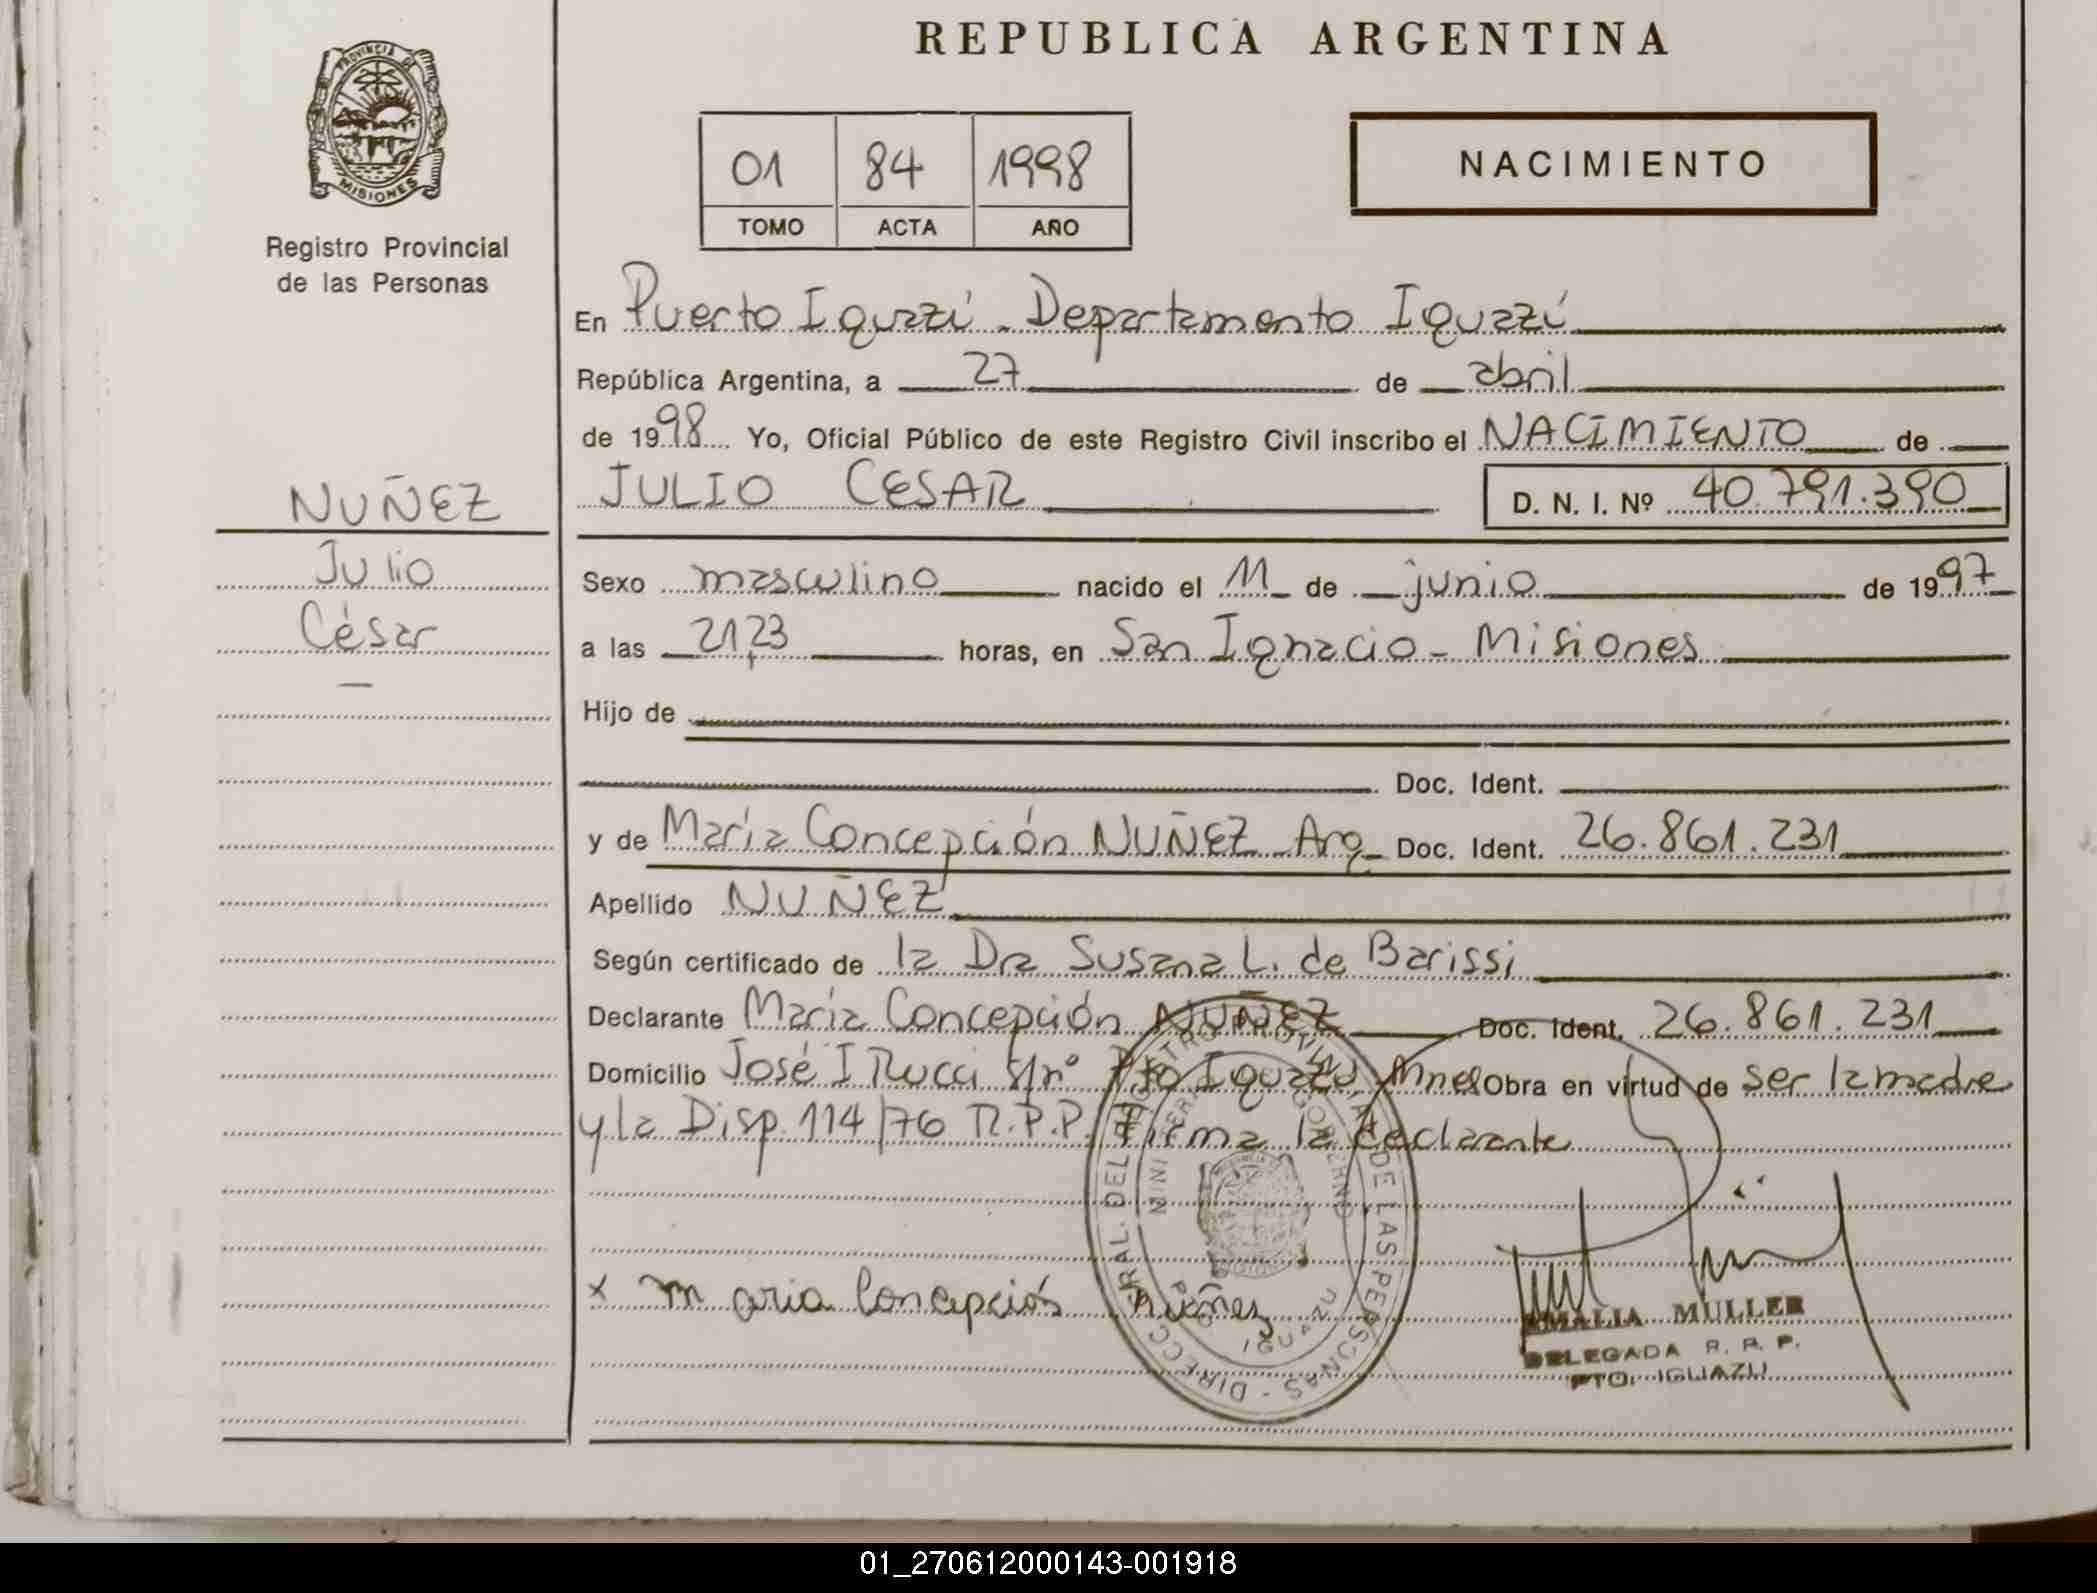 REPUBLICA ARGENTINA
PROVINCIA DE
MISIONES
Registro Provincial
de las Personas
01 84 1998
TOMO ACTA AÑO
NACIMIENTO
En Puerto Iguazú - Departamento Iguazú
República Argentina, a 27 de abril
de 1998 Yo, Oficial Público de este Registro Civil inscribo el NACIMIENTO de
JULIO CESAR D. N. I. Nº 40.791.390
NUÑEZ
Julio
César
Sexo masculino nacido el 11 de junio de 1997
a las 21,23 horas, en San Ignacio - Misiones
Hijo de
Doc. Ident.
y de María Concepción NUÑEZ Arg Doc. Ident. 26.861.231
Apellido NUÑEZ
Según certificado de la Dra Susana L. de Barissi
Declarante María Concepción NUÑEZ Doc. Ident. 26.861.231
Domicilio José I Rucci s/nº Pto Iguazú Mnes Obra en virtud de ser la madre
y la Disp. 114/76 R.P.P. Firma la declarante
x maria Concepción Nuñez
IGUAZU
AMALIA MULLER
DELEGADA R. P. P.
PTO. IGUAZU
01_270612000143-001918